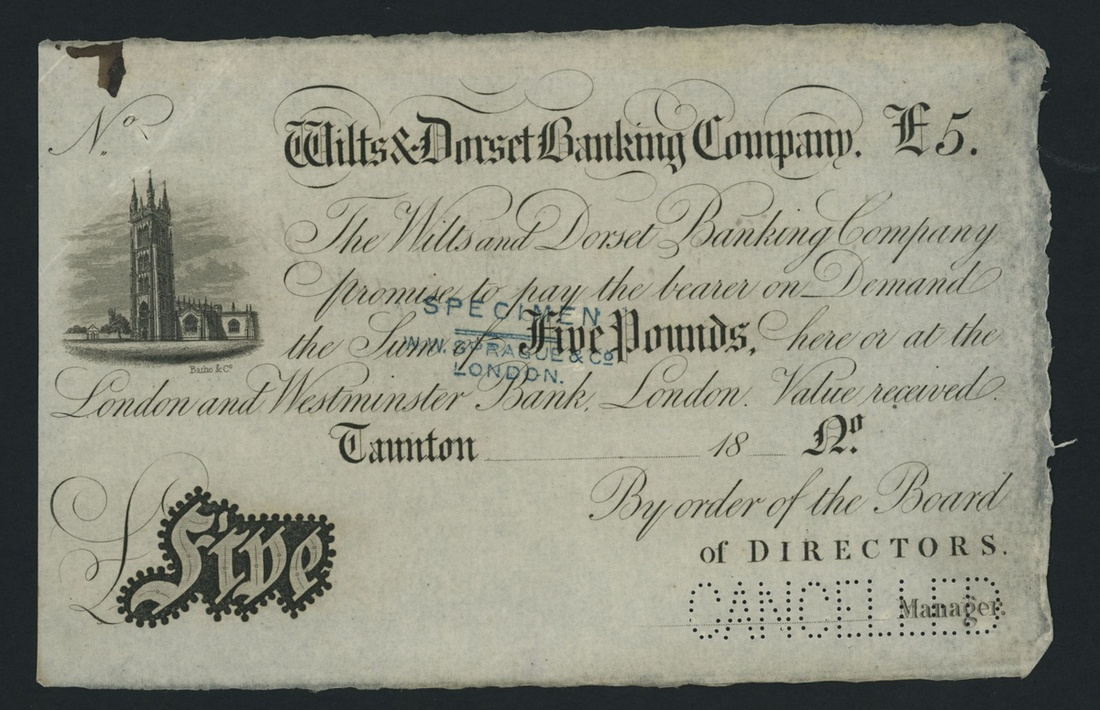 No
Wilts & Dorset Banking Company. £5.
The Wilts and Dorset Banking Company
promise to pay the bearer on Demand
the Sum of Five Pounds, here or at the
London and Westminster Bank, London. Value received.
Taunton 18 No.
By order of the Board
of DIRECTORS.
Manager.
£Five
Batho & Co
SPECIMEN
W.W. SPRAGUE & Co
LONDON.
CANCELLED